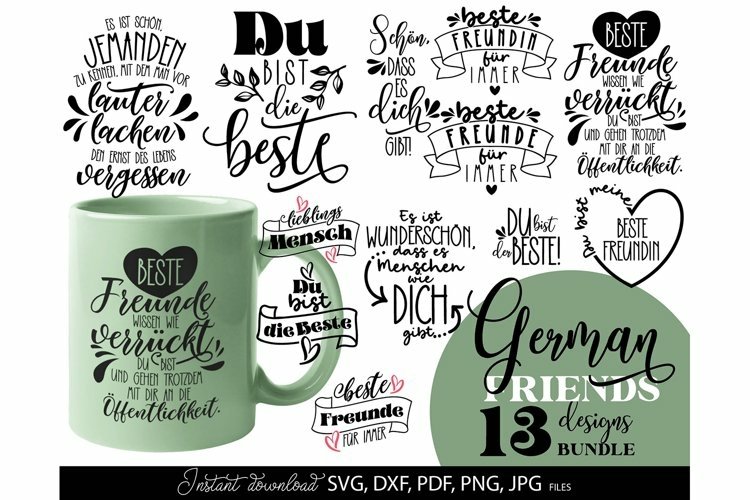 ES IST SCHÖN,
JEMANDEN
ZU KENNEN, MIT DEM MAN VOR
lauter
lachen
DEN ERNST DES LEBENS
vergessen
Du
BIST
die
beste
Schön,
DASS
ES
dich
GIBT!
beste
FREUNDIN
für
IMMER
beste
FREUNDE
für
IMMER
BESTE
Freunde
WISSEN WIE
verrückt
DU BIST
UND GEHEN TROTZDEM
MIT DIR AN DIE
Öffentlichkeit.
BESTE
Freunde
WISSEN WIE
verrückt
DU BIST
UND GEHEN TROTZDEM
MIT DIR AN DIE
Öffentlichkeit.
lieblings
Mensch
Du
bist
die Beste
beste
Freunde
FÜR IMMER
Es ist
WUNDERSCHÖN,
...dass es
Menschen
wie
DICH
gibt...
DU bist
der BESTE!
Du bist meine
BESTE
FREUNDIN
German
FRIENDS
13 designs
BUNDLE
Instant download SVG, DXF, PDF, PNG, JPG FILES